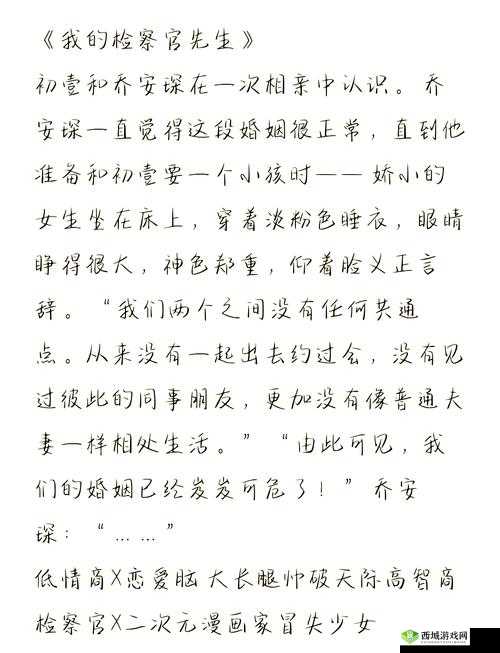 《我的检察官先生》
初壹和乔安琛在一次相亲中认识。乔
安琛一直觉得这段婚姻很正常，直到他
准备和初壹要一个小孩时——娇小的
女生坐在床上，穿着淡粉色睡衣，眼睛
睁得很大，神色郑重，仰着脸义正言
辞。“我们两个之间没有任何共通
点。从来没有一起出去约过会，没有见
过彼此的同事朋友，更加没有像普通夫
妻一样相处生活。”“由此可见，我
们的婚姻已经岌岌可危了！”乔安
琛：“……”
低情商X恋爱脑 大长腿帅破天际高智商
检察官X二次元漫画家冒失少女
西域游戏网